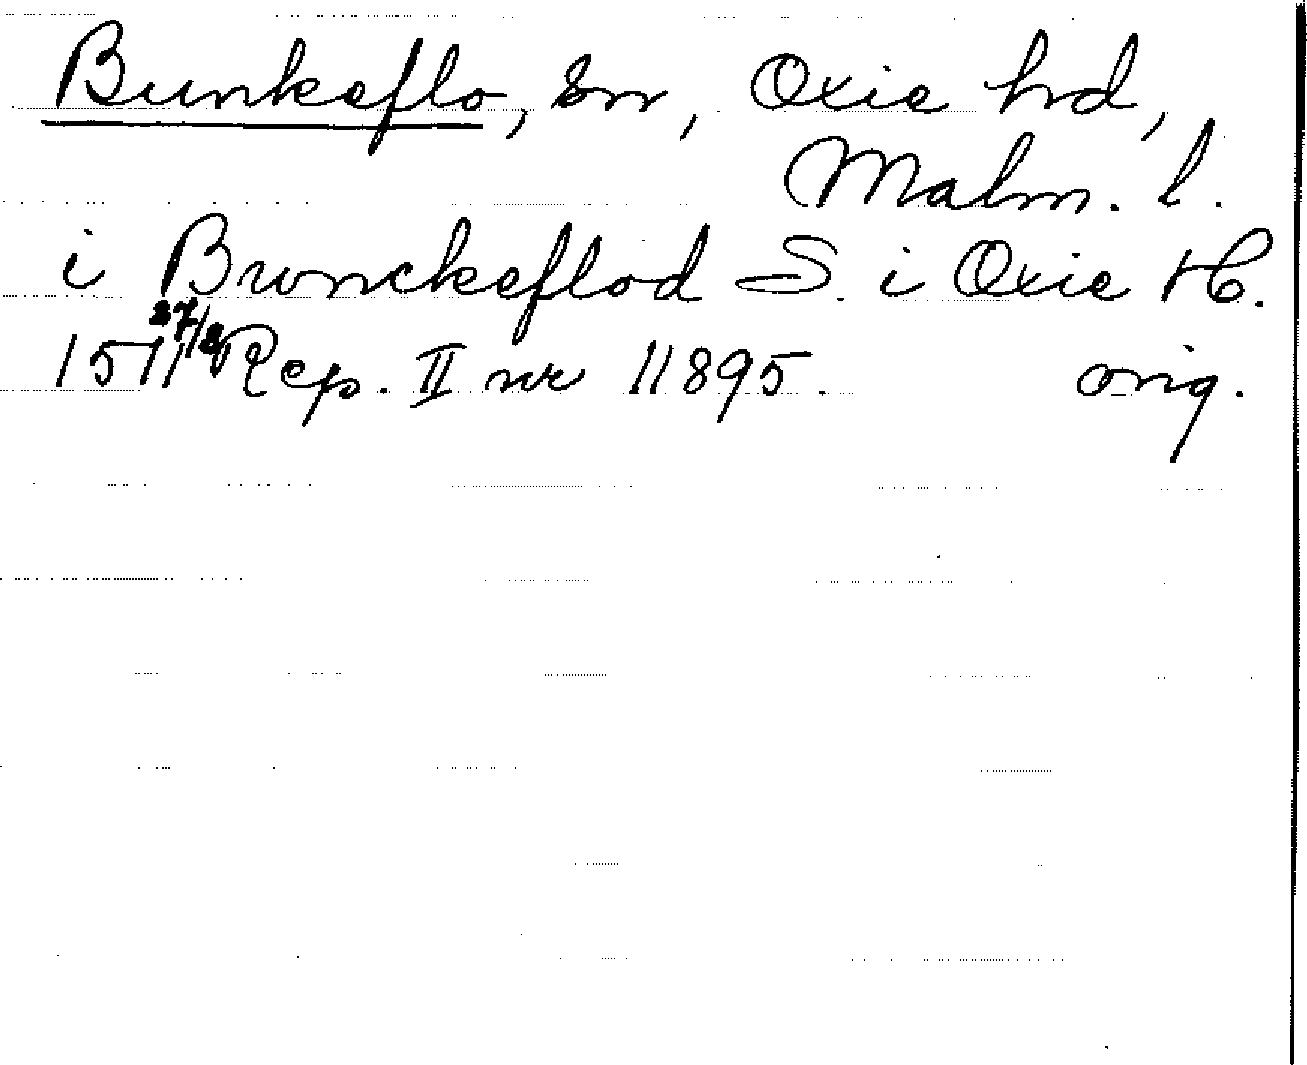 Bunkeflo, sn, Oxie hrd,
Malm. l.
i Bwnckeflod S. i Oxie H.
1511 27/8 Rep. II nr 11895. orig.